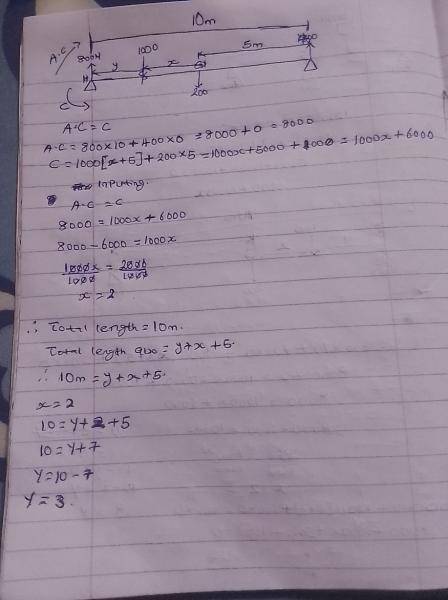 10m
A·C 800N 1000 5m
y x
200
C
A·C = C
A·C = 800×10 + 400×0 = 8000 + 0 = 8000
C = 1000[x+5] + 200×5 = 1000x + 5000 + 1000 = 1000x + 6000
Inputing.
A·C = C
8000 = 1000x + 6000
8000 - 6000 = 1000x
1000x = 2000
1000 1000
x = 2
∴ Total length = 10m.
Total length also = y + x + 5.
∴ 10m = y + x + 5.
x = 2
10 = y + 2 + 5
10 = y + 7
y = 10 - 7
y = 3.